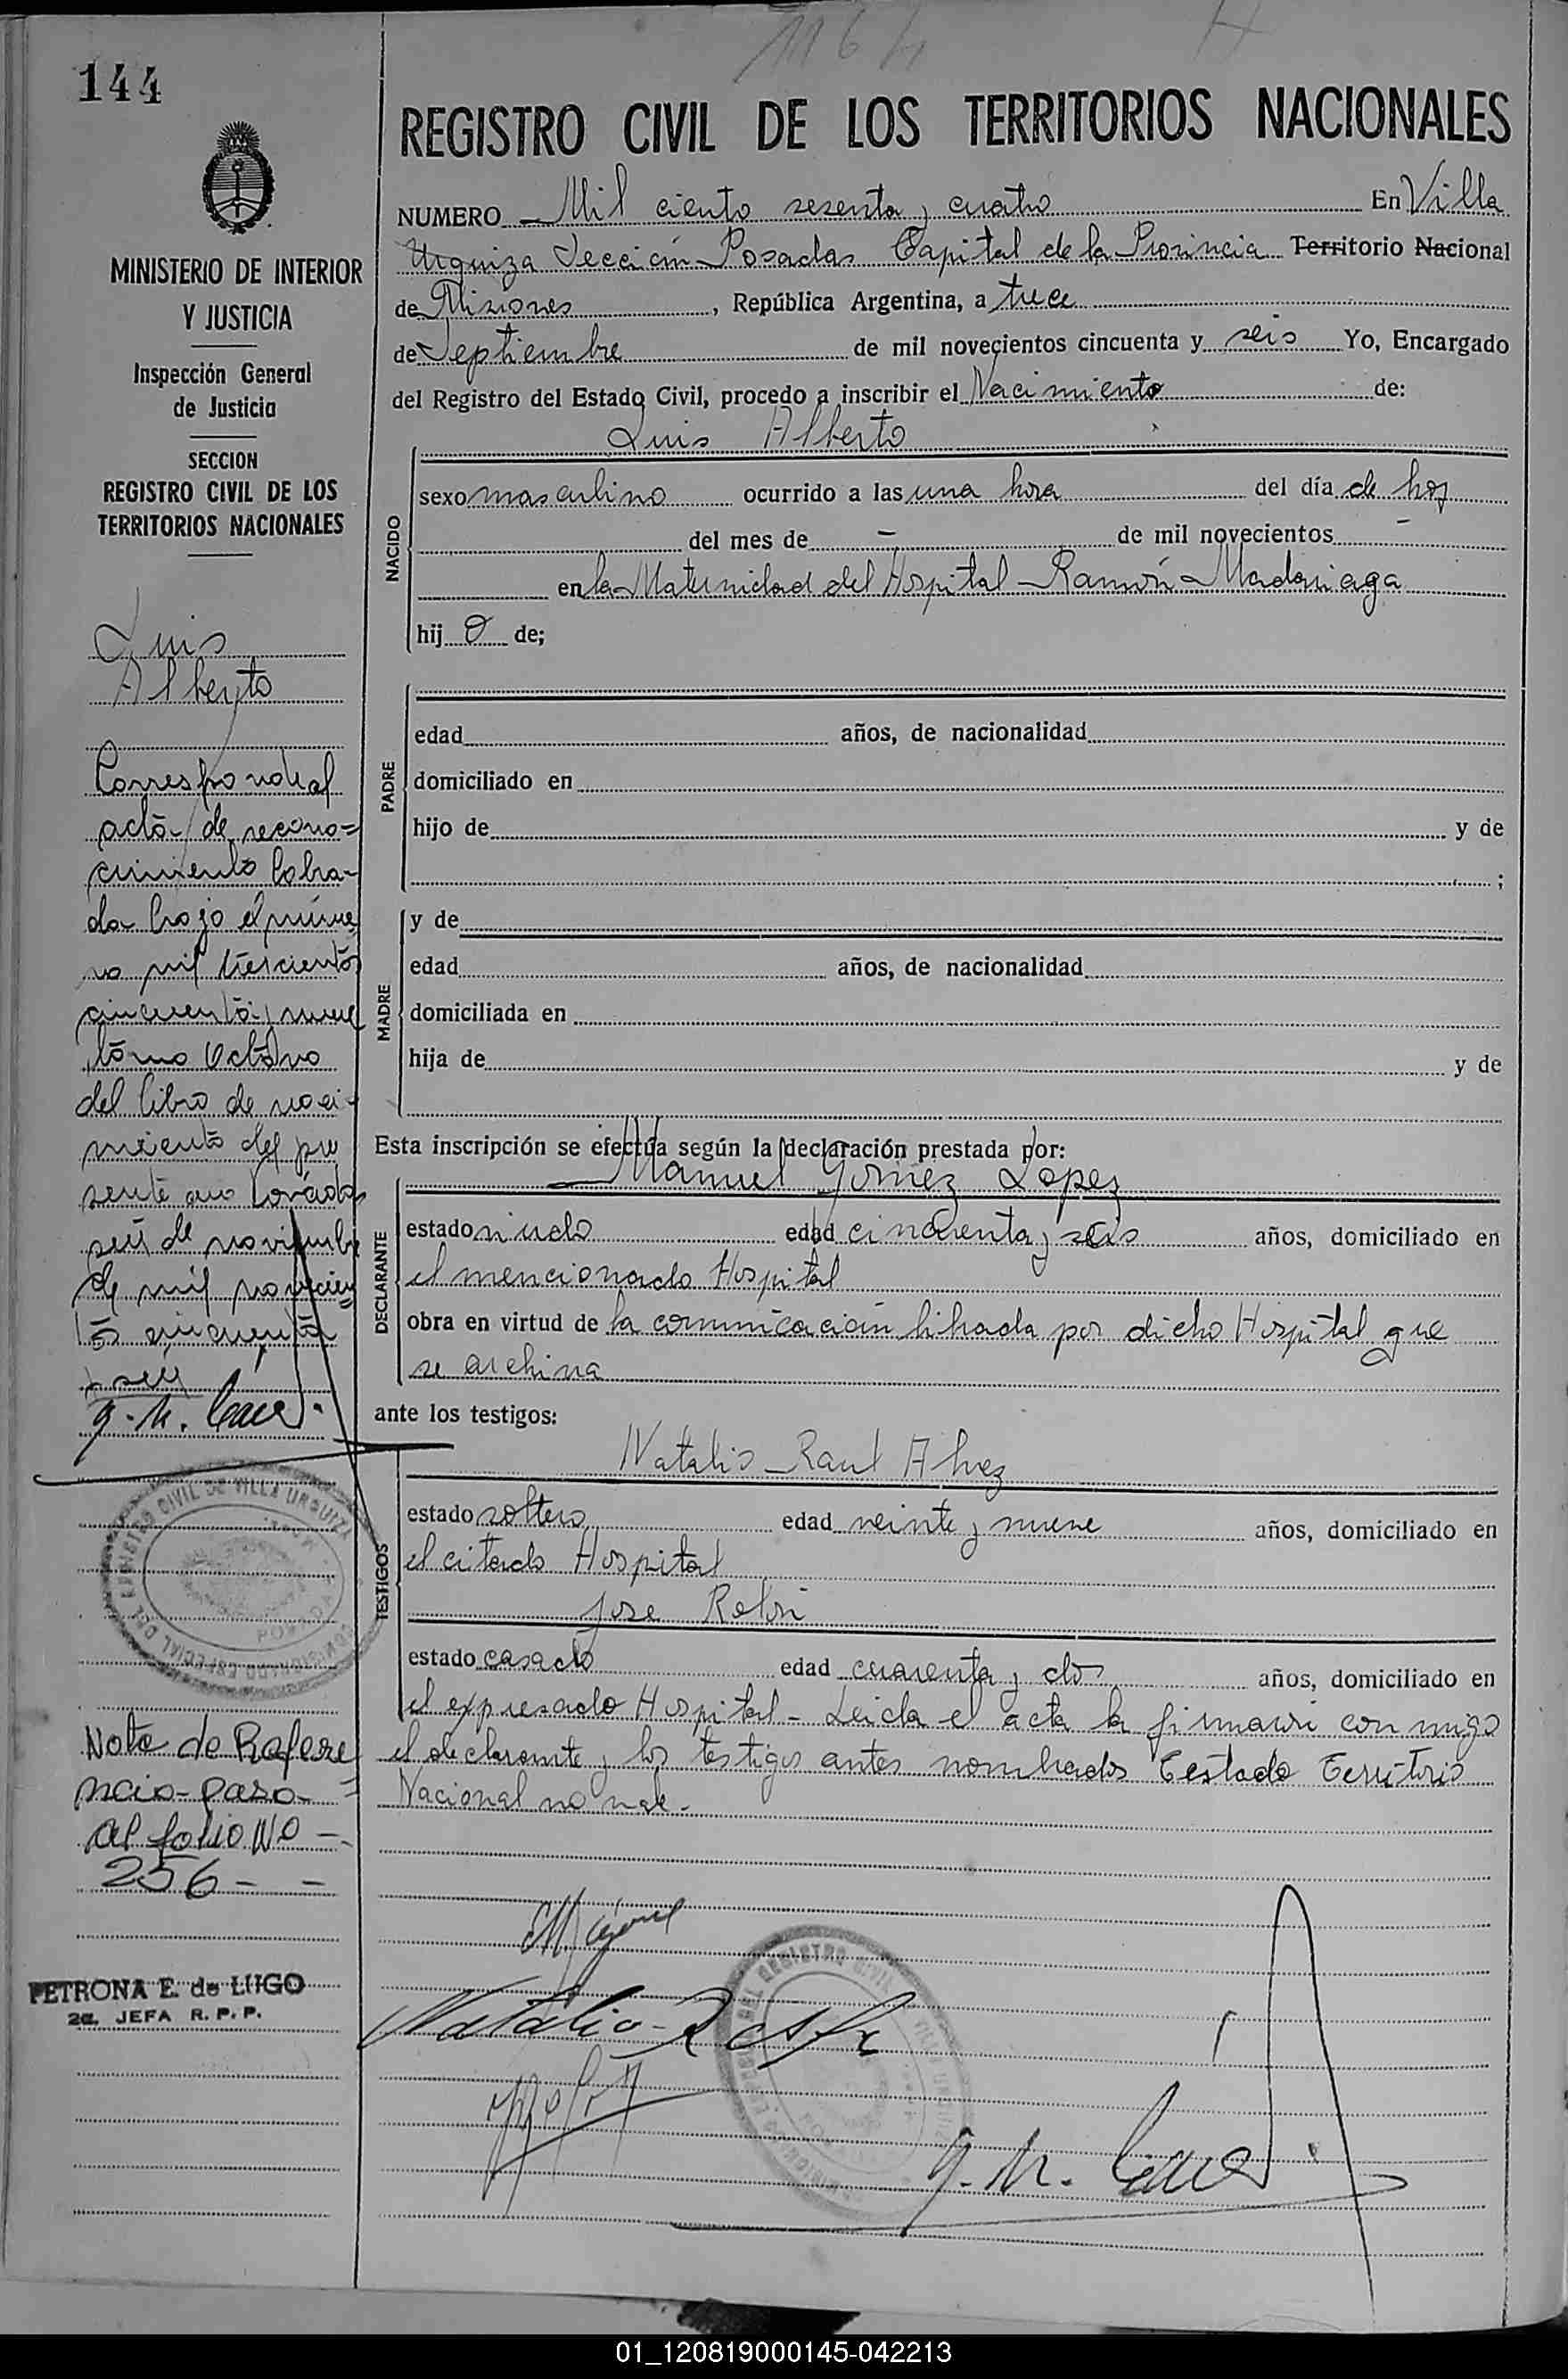 1164
144
REGISTRO CIVIL DE LOS TERRITORIOS NACIONALES
MINISTERIO DE INTERIOR
Y JUSTICIA
Inspección General
de Justicia
SECCION
REGISTRO CIVIL DE LOS
TERRITORIOS NACIONALES
NUMERO Mil ciento sesenta y cuatro En Villa
Urquiza Sección Posadas Capital de la Provincia Territorio Nacional
de Misiones, República Argentina, a trece
de Septiembre de mil novecientos cincuenta y seis Yo, Encargado
del Registro del Estado Civil, procedo a inscribir el Nacimiento de:
Luis Alberto
NACIDO
sexo masculino ocurrido a las una hora del día de hoy
del mes de - de mil novecientos -
en la Maternidad del Hospital Ramón Madariaga
hij o de;
PADRE
edad años, de nacionalidad
domiciliado en
hijo de y de
;
MADRE
y de
edad años, de nacionalidad
domiciliada en
hija de y de
Esta inscripción se efectúa según la declaración prestada por:
Manuel Gomez Lopez
DECLARANTE
estado viudo edad cincuenta y seis años, domiciliado en
el mencionado Hospital
obra en virtud de la comunicación librada por dicho Hospital que
se archiva
ante los testigos:
Natalio Raul Alvez
TESTIGOS
estado soltero edad veinte y nueve años, domiciliado en
el citado Hospital
Jose Relori
estado casado edad cuarenta y dos años, domiciliado en
el expresado Hospital - Leida el acta la firmaron con migo
el declarante y los testigos antes nombrados Testado Territorio
Nacional no vale.-
Luis
Alberto
Corresponde al
acta de recono=
cimiento labra-
da bajo el núme
ro mil trescientos
cincuenta y nueve
tomo Octavo
del libro de naci-
miento del pre
sente año
seis de noviembre
de mil novecien
tos cincuenta
y seis
COMISARIATO ESPECIAL DEL REGISTRO CIVIL DE VILLA URQUIZA
POSADAS
Nota de Refere
ncia-paso-=
al folio No -
256 - -
PETRONA E. de LUGO
2a. JEFA R. P. P.
Natalio R
REGISTRO CIVIL
01_120819000145-042213